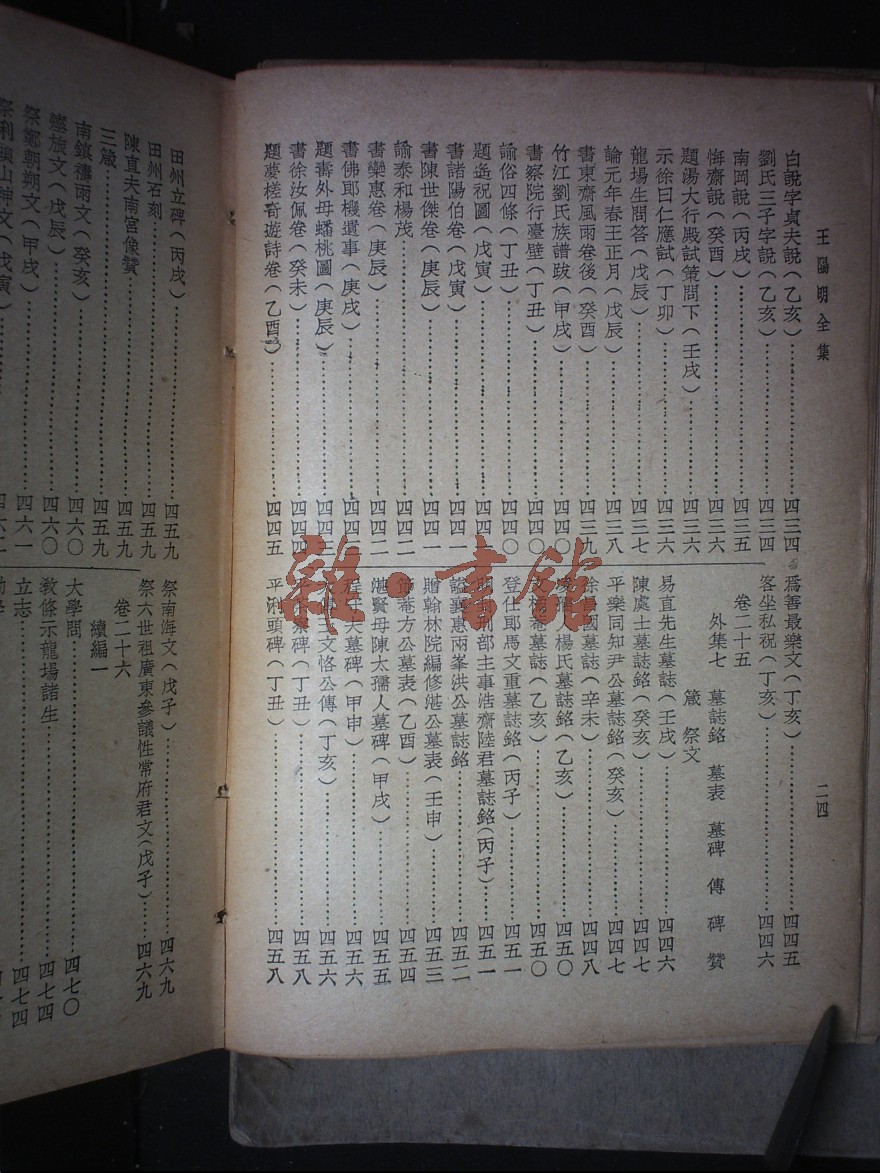 王陽明全集
二四
白說字貞夫說(乙亥)……四三四
劉氏三子字說(乙亥)……四三四
南岡說(丙戌)……四三五
悔齋說(癸酉)……四三六
題湯大行殿試策問下(壬戌)……四三六
示徐曰仁應試(丁卯)……四三六
龍場生問答(戊辰)……四三七
論元年春王正月(戊辰)……四三八
書東齋風雨卷後(癸酉)……四三九
竹江劉氏族譜跋(甲戌)……四四〇
書察院行臺壁(丁丑)……四四〇
諭俗四條(丁丑)……四四〇
題遙祝圖(戊寅)……四四一
書諸陽伯卷(戊寅)……四四一
書陳世傑卷(庚辰)……四四一
諭泰和楊茂……四四二
書欒惠卷(庚辰)……四四二
書佛郎機遺事(庚戌)……四四二
題壽外母蟠桃圖(庚辰)……四四三
書徐汝佩卷(癸未)……四四四
題夢槎奇遊詩卷(乙酉)……四四五
爲善最樂文(丁亥)……四四五
客坐私祝(丁亥)……四四六
卷二十五
外集七 墓誌銘 墓表 墓碑 傳 碑 贊
箴 祭文
易直先生墓誌(壬戌)……四四六
陳處士墓誌銘(癸亥)……四四七
平樂同知尹公墓誌銘(癸亥)……四四七
徐昌國墓誌(辛未)……四四八
人楊氏墓誌銘(乙亥)……四五〇
文橘菴墓誌(乙亥)……四五〇
登仕郎馬文重墓誌銘(丙子)……四五一
刑部主事浩齋陸君墓誌銘(丙子)……四五一
謚襄惠兩峯洪公墓誌銘……四五二
贈翰林院編修湛公墓表(壬申)……四五三
節菴方公墓表(乙酉)……四五四
湛賢母陳太孺人墓碑(甲戌)……四五五
程守夫墓碑(甲申)……四五六
王文恪公傳(丁亥)……四五六
茶寮碑(丁丑)……四五八
平浰頭碑(丁丑)……四五八
田州立碑(丙戌)……四五九
田州石刻……四五九
陳直夫南宮像贊……四五九
三箴……四五九
南鎮禱雨文(癸亥)……四六〇
瘞旅文(戊辰)……四六〇
祭鄭朝朔文(甲戌)……四六一
祭浰頭山神文(戊寅)
祭南海文(戊子)……四六九
祭六世祖廣東參議性常府君文(戊子)……四六九
卷二十六
續編一
大學問……四七〇
教條示龍場諸生……四七四
立志……四七四
勤學